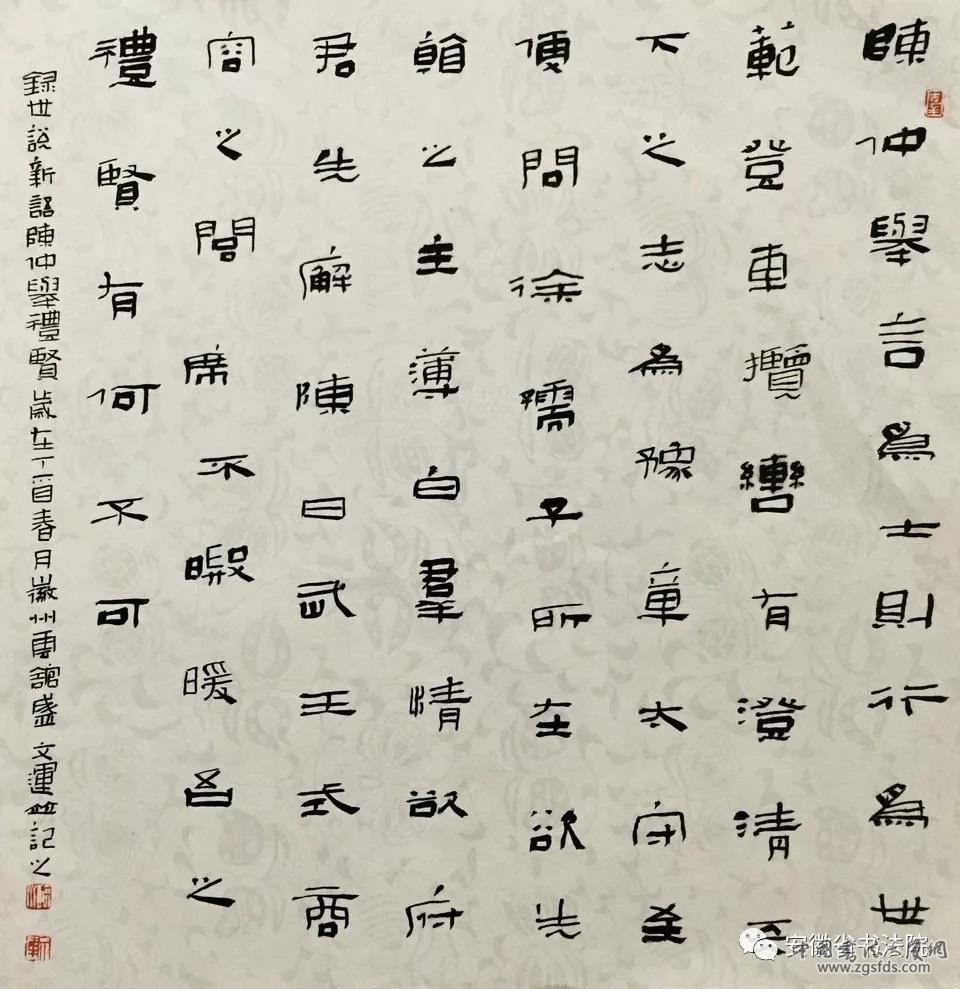 陳仲舉言為士則行為世
範登車攬轡有澄清天
下之志為豫章太守至
便問徐孺子所在欲先
看之主薄白羣情欲府
君先廨陳曰武王式商
容之閭席不暇暖吾之
禮賢有何不可
録世說新語陳仲舉禮賢歲在丁酉春月徽州雲館盛文運並記之
安徽省书法院
www.zgsfds.com